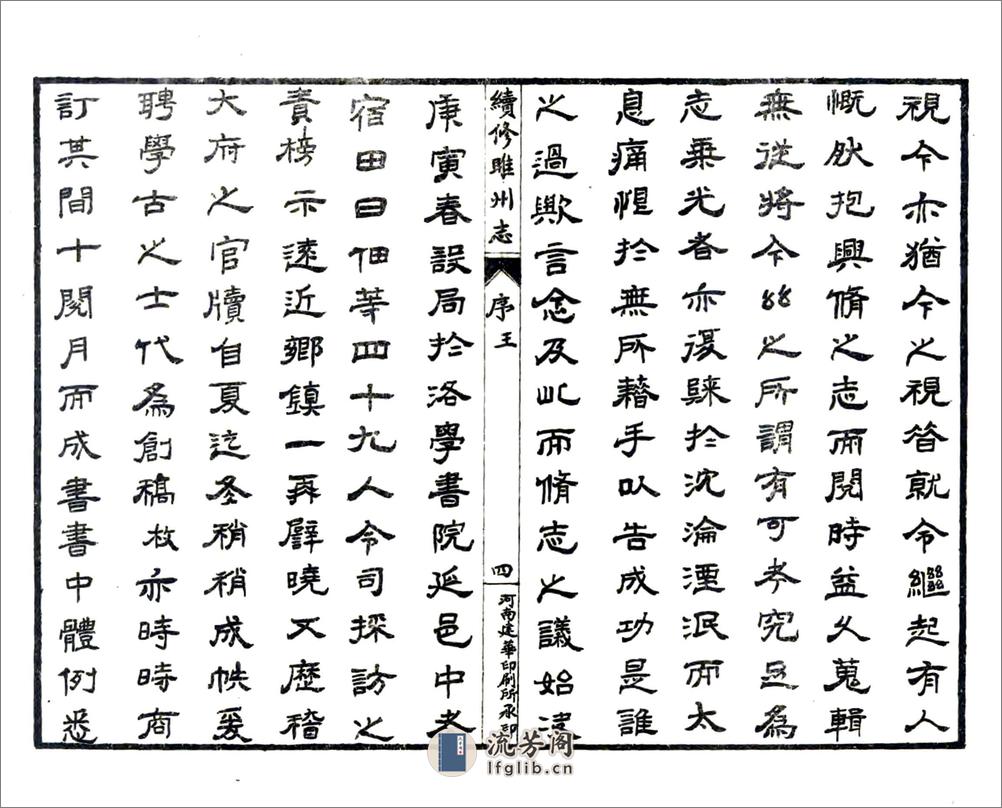 視今亦猶今之視昔就令繼起有人
慨然抱興脩之志而閱時益久蒐輯
無從將今茲之所謂有可考究足為
志乘光者亦復歸於沈淪湮泯而太
息痛恨於無所藉手以告成功是誰
之過歟言念及此而脩志之議始決
續修睢州志
序王
四
河南建華印刷所承印
庚寅春設局於洛學書院延邑中老
宿田曰佃等四十九人令司採訪之
責榜示遠近鄉鎮一再譬曉又歷稽
大府之官牘自夏迄冬稍稍成帙爰
聘學古之士代為創稿枚亦時時商
訂其間十閱月而成書書中體例悉
流芳阁
lfglib.cn